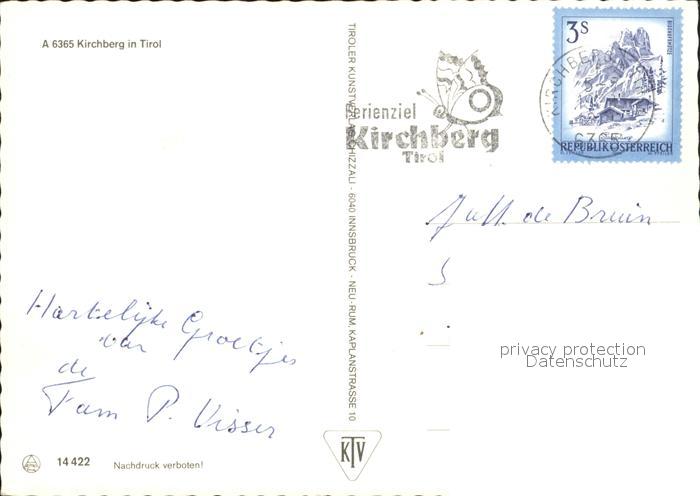 A 6365 Kirchberg in Tirol
Hartelijke Groetjes
van
de
Fam P. Visser
14 422 Nachdruck verboten!
TIROLER KUNSTVERLAG CHIZZALI - 6040 INNSBRUCK - NEU-RUM, KAPLANSTRASSE 10
KTV
Ferienziel
Kirchberg
Tirol
3S
KIRCHBERG
6365
REPUBLIK ÖSTERREICH
de Bruin
privacy protection
Datenschutz